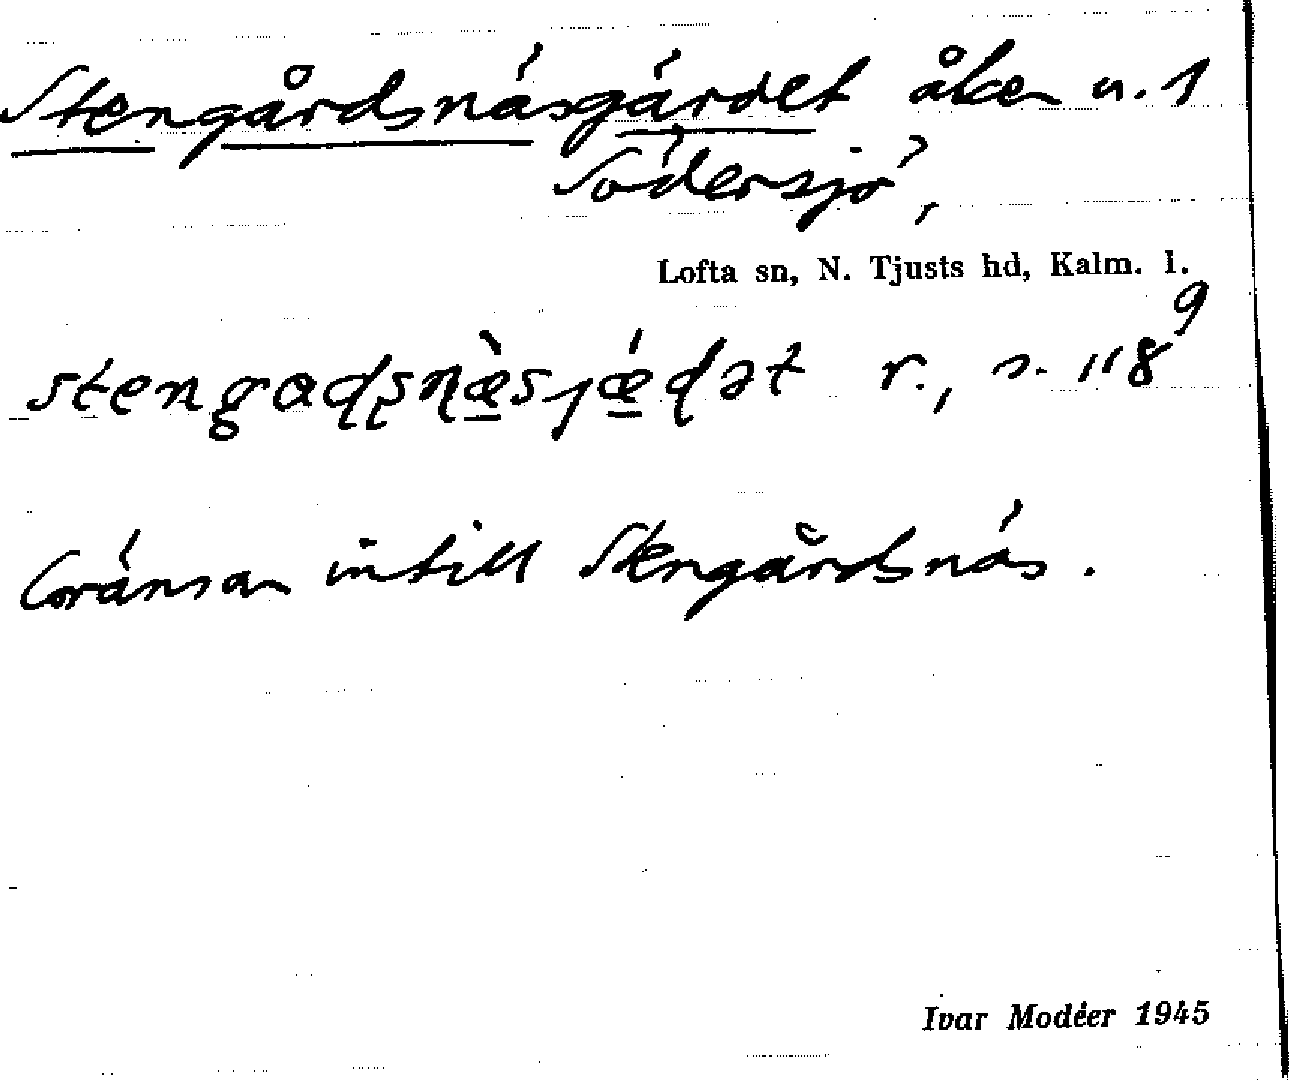 Stengårdsnäsgärdet åker u. 1
Södersjö,
Lofta sn, N. Tjusts hd, Kalm. l.
r., s. 118 9
Gränsar intill Stengårdsnäs.
Ivar Modéer 1945